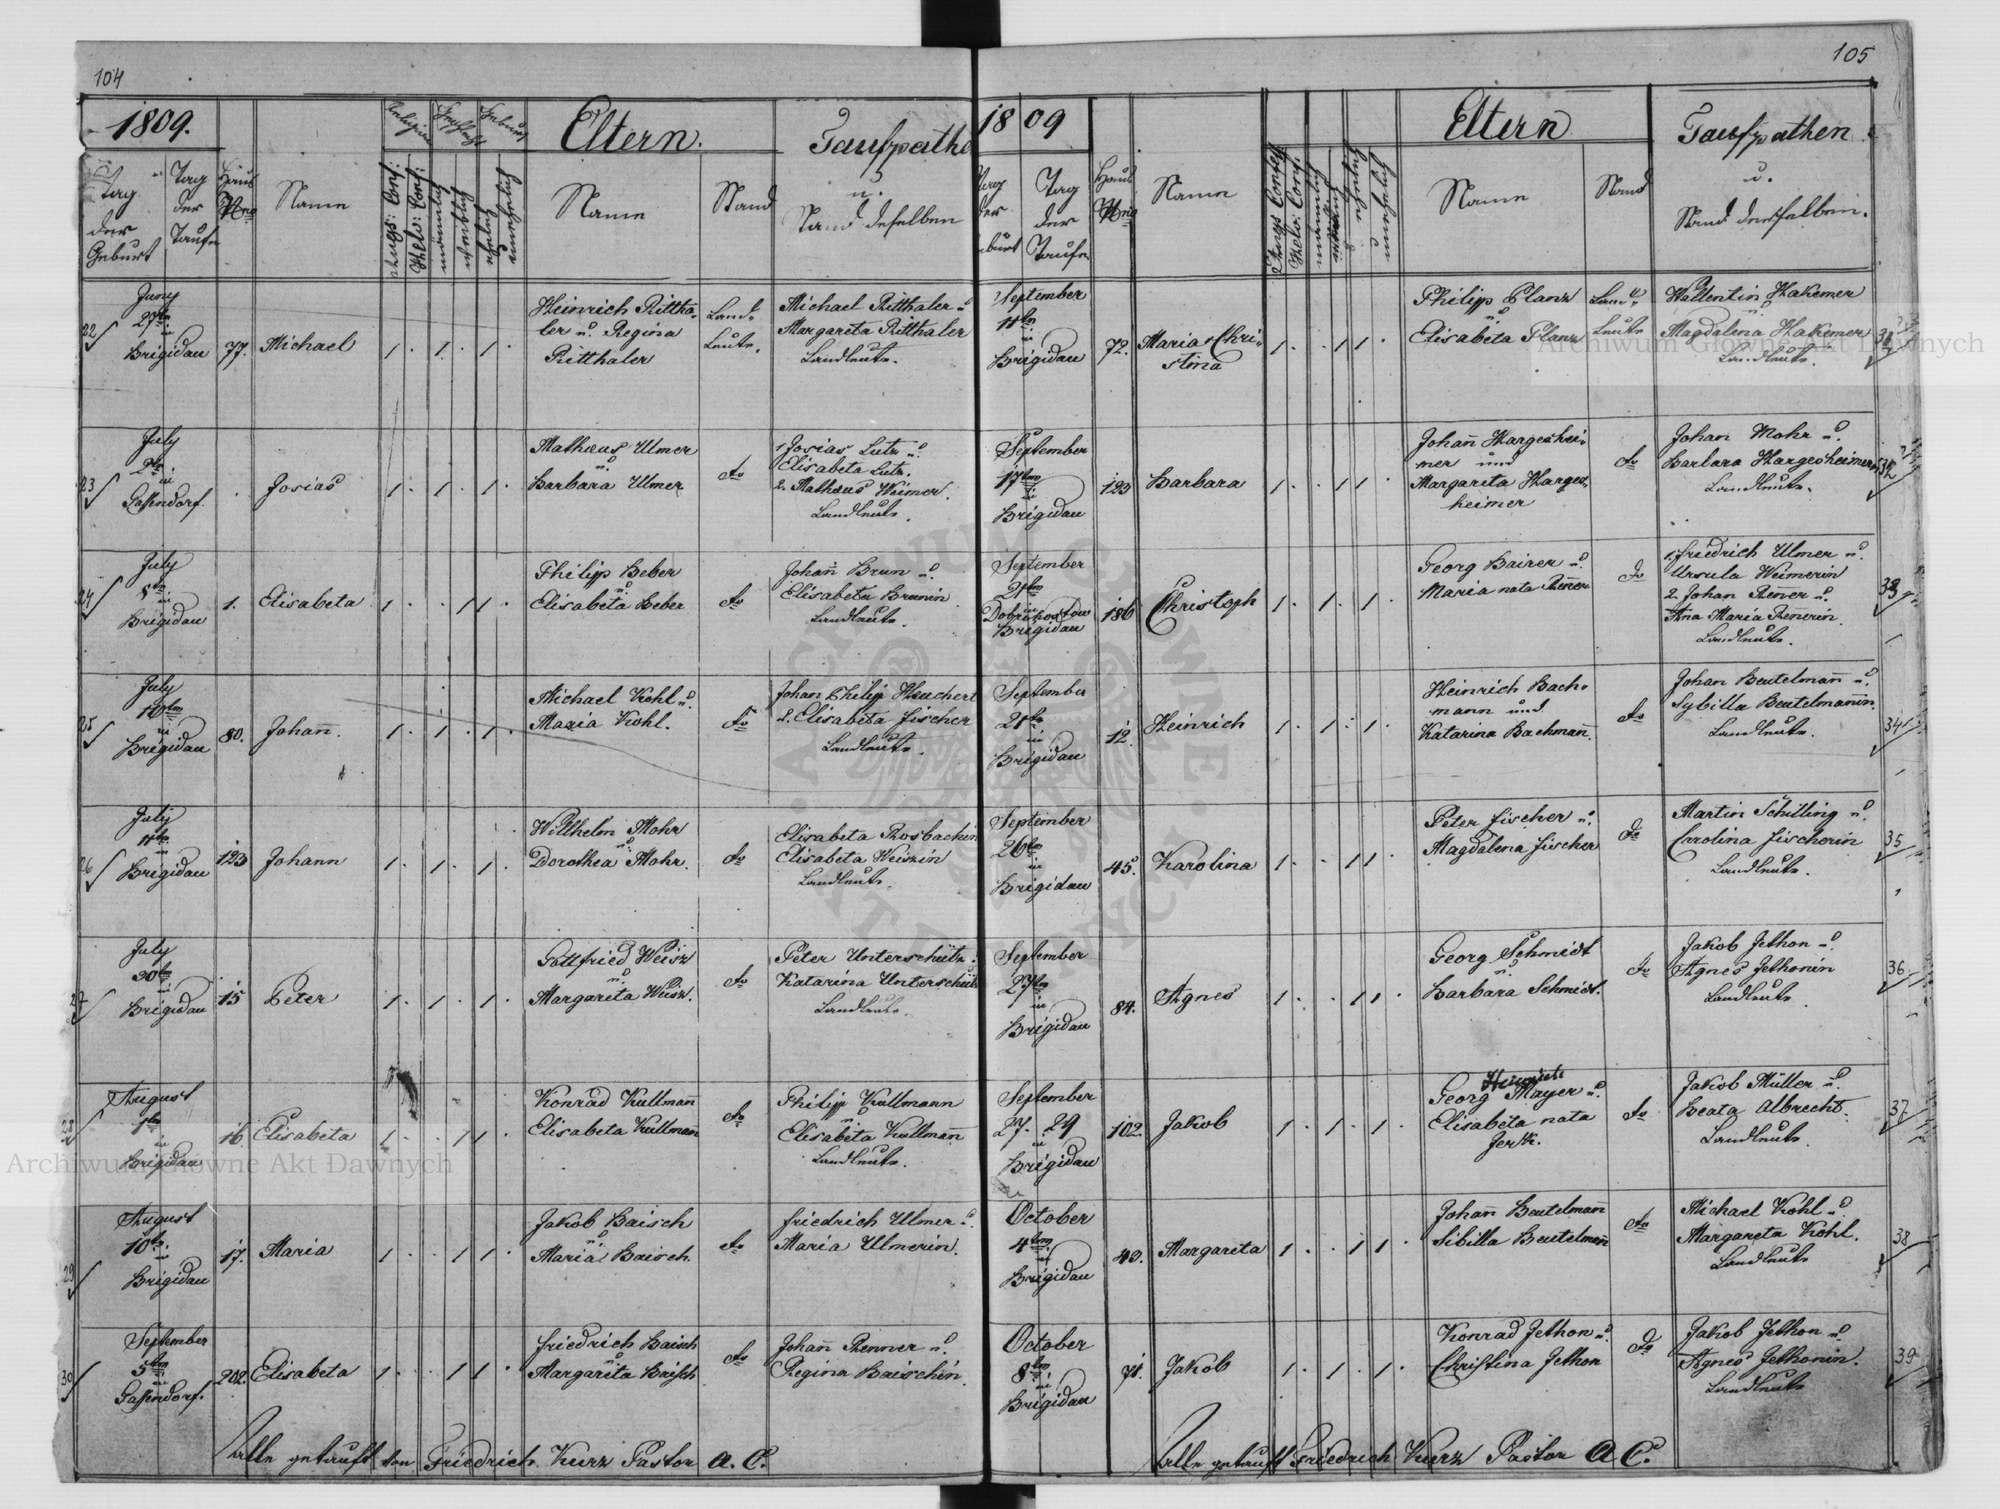 104
1809.
Eltern.
Taufpathe
Tag
der
Geburt
Tag
der
Taufe
Haus
Nro
Name
Augs: Conf:
Helv: Conf:
männlich
weiblich
ehelich
unehelich
Name
Stand
u.
Stand deselben
22
Juny
27tn
in
Brigidau
77.
Michael
1 . 1 . 1 .
Heinrich Rittha-
ler u. Regina
Ritthaler
Land-
Leute.
Michael Ritthaler u.
Margareta Ritthaler
Landleute.
23
July
in
Gassendorf.
Josias
1 . 1 . 1 .
Mathaeus Ulmer
u.
Barbara Ulmer
do
1. Josias Lutz u.
Elisabeta Lutz.
2. Mathaeus Weimer.
Landleute.
24
July
8tn
in
Brigidau
1.
Elisabeta
1 . . 1 1 .
Philipp Beber
u.
Elisabeta Beber
do
Johan̄ Brun u.
Elisabeta Brunin
Landleute.
25
July
10tn
in
Brigidau
80.
Johan̄.
1 . 1 . 1 .
Michael Kohl u.
Maria Kohl.
do
Johan Philip Heuchert
2. Elisabeta Fischer
Landleute.
26
July
11tn
in
Brigidau
123
Johann
1 . 1 . 1 .
Willhelm Mohr
u.
Dorothea Mohr.
do
Elisabeta Rosbachin
Elisabeta Weiszin
Landleute.
27
July
30tn
in
Brigidau
15
Peter
1 . 1 . 1 .
Gottfried Weisz
u.
Margareta Weisz.
do
Peter Unterschütz
Katarina Unterschütz
Landleute.
28
August
1tn
in
Brigidau
16
Elisabeta
1 . . 1 1 .
Konrad Kullman̄
Elisabeta Kullman
do
Philip Kullmann
u.
Elisabeta Kullman̄
Landleute.
29
August
10tn.
in
Brigidau
17.
Maria
1 . . 1 1 .
Jakob Baisch
u.
Maria Baisch.
do
Friedrich Ulmer u.
Maria Ulmerin.
30
September
5tn
in
Gassendorf.
202.
Elisabeta
1 . . 1 1 .
Friedrich Baisch
u.
Margarita Baisch
do
Johan̄ Renner u.
Regina Baischin.
Alle getauft von Friedrich Kurz Pastor A. C.
105
1809
Eltern
Taufpathen
Tag
der
Geburt
Tag
der
Taufe
Haus
Nro
Name
Augs Confess
Helv: Conf.
männlich
ehelich
unehelich
Name
Stand
u.
Stand derselben.
September
11tn
in
Brigidau
72.
Maria Chri-
stina
1 . . 1 1 .
Philipp Planz
u.
Elisabeta Planz
Land-
Leute
Wallentin Hakemer
u.
Magdalena Hakemer
Landleute.
September
17tn
in
Brigidau
123
Barbara
1 . . 1 1 .
Johan̄ Hargeshei-
mer und
Margareta Harges-
heimer
do
Johan Mohr u.
Barbara Hargesheimer
Landleute.
32
September
21tn
in
Dobrohostow
Brigidau
186
Christoph
1 . 1 . 1 .
Georg Bairer u.
Maria nata Ren̄er
do
1. Friedrich Ulmer u.
Ursula Weimerin
2. Johan Rener u.
Ana Maria Ren̄erin.
Landleute.
33
September
21tn
in
Brigidau
12.
Heinrich
1 . 1 . 1 .
Heinrich Bach-
mann und
Katarina Bachman̄.
do
Johan Beutelman̄ u.
Sybilla Beutelman̄in.
Landleute.
34
September
26tn
in
Brigidau
45.
Karolina
1 . . 1 1 .
Peter Fischer u.
Magdalena Fischer
do
Martin Schilling u.
Carolina Fischerin
Landleute.
35
September
27tn
in
Brigidau
84.
Agnes
1 . . 1 1 .
Georg Schmidt
u.
Barbara Schmidt.
do
Jakob Jethon u.
Agnes Jethonin
Landleute
36
September
27. 29
in
Brigidau
102.
Jakob
1 . 1 . 1 .
Heinrich
Georg Mayer u.
Elisabeta nata
do
Jakob Müller u.
Beata Albrecht.
Landleute.
37
October
4tn
in
Brigidau
43.
Margareta
1 . . 1 1 .
Johan̄ Beutelman̄
Sibilla Beutelman̄
do
Michael Kohl u.
Margareta Kohl.
Landleute
38
October
8tn
in
Brigidau
71.
Jakob
1 . 1 . 1 .
Konrad Jethon u.
Christina Jethon
do
Jakob Jethon u.
Agnes Jethonin.
Landleute
39
Alle getauft Friedrich Kurz Pastor A C.
Archiwum Główne Akt Dawnych
Archiwum Główne Akt Dawnych
ARCHIWUM GŁÓWNE AKT DAWNYCH